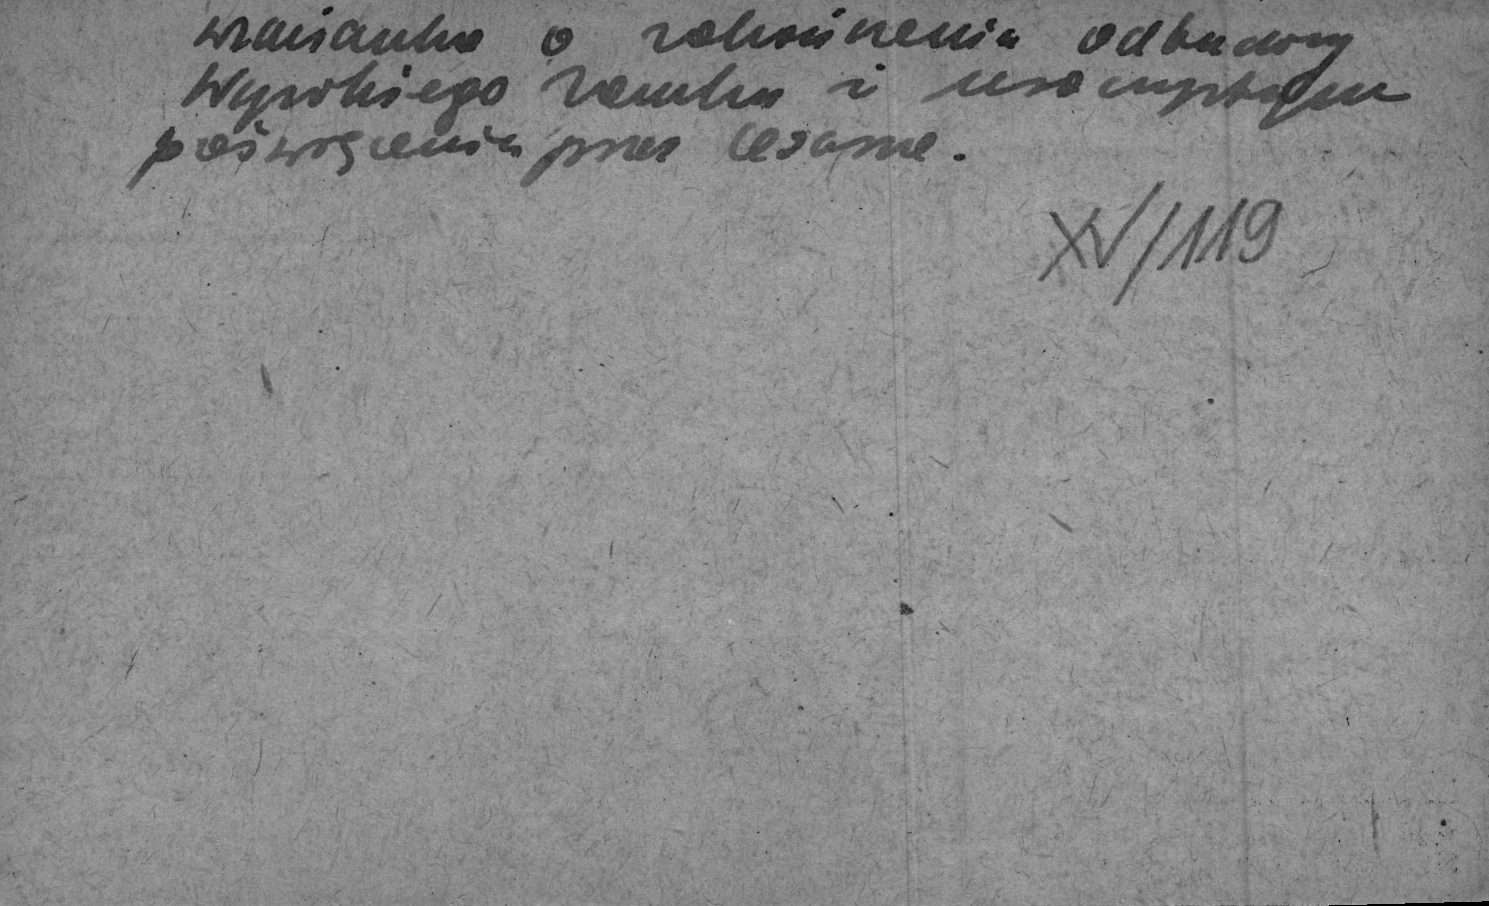 wzmianka o zakończeniu odbudowy
Wysokiego Zamku i uroczystym
poświęceniu przez cesarza.
XV/119